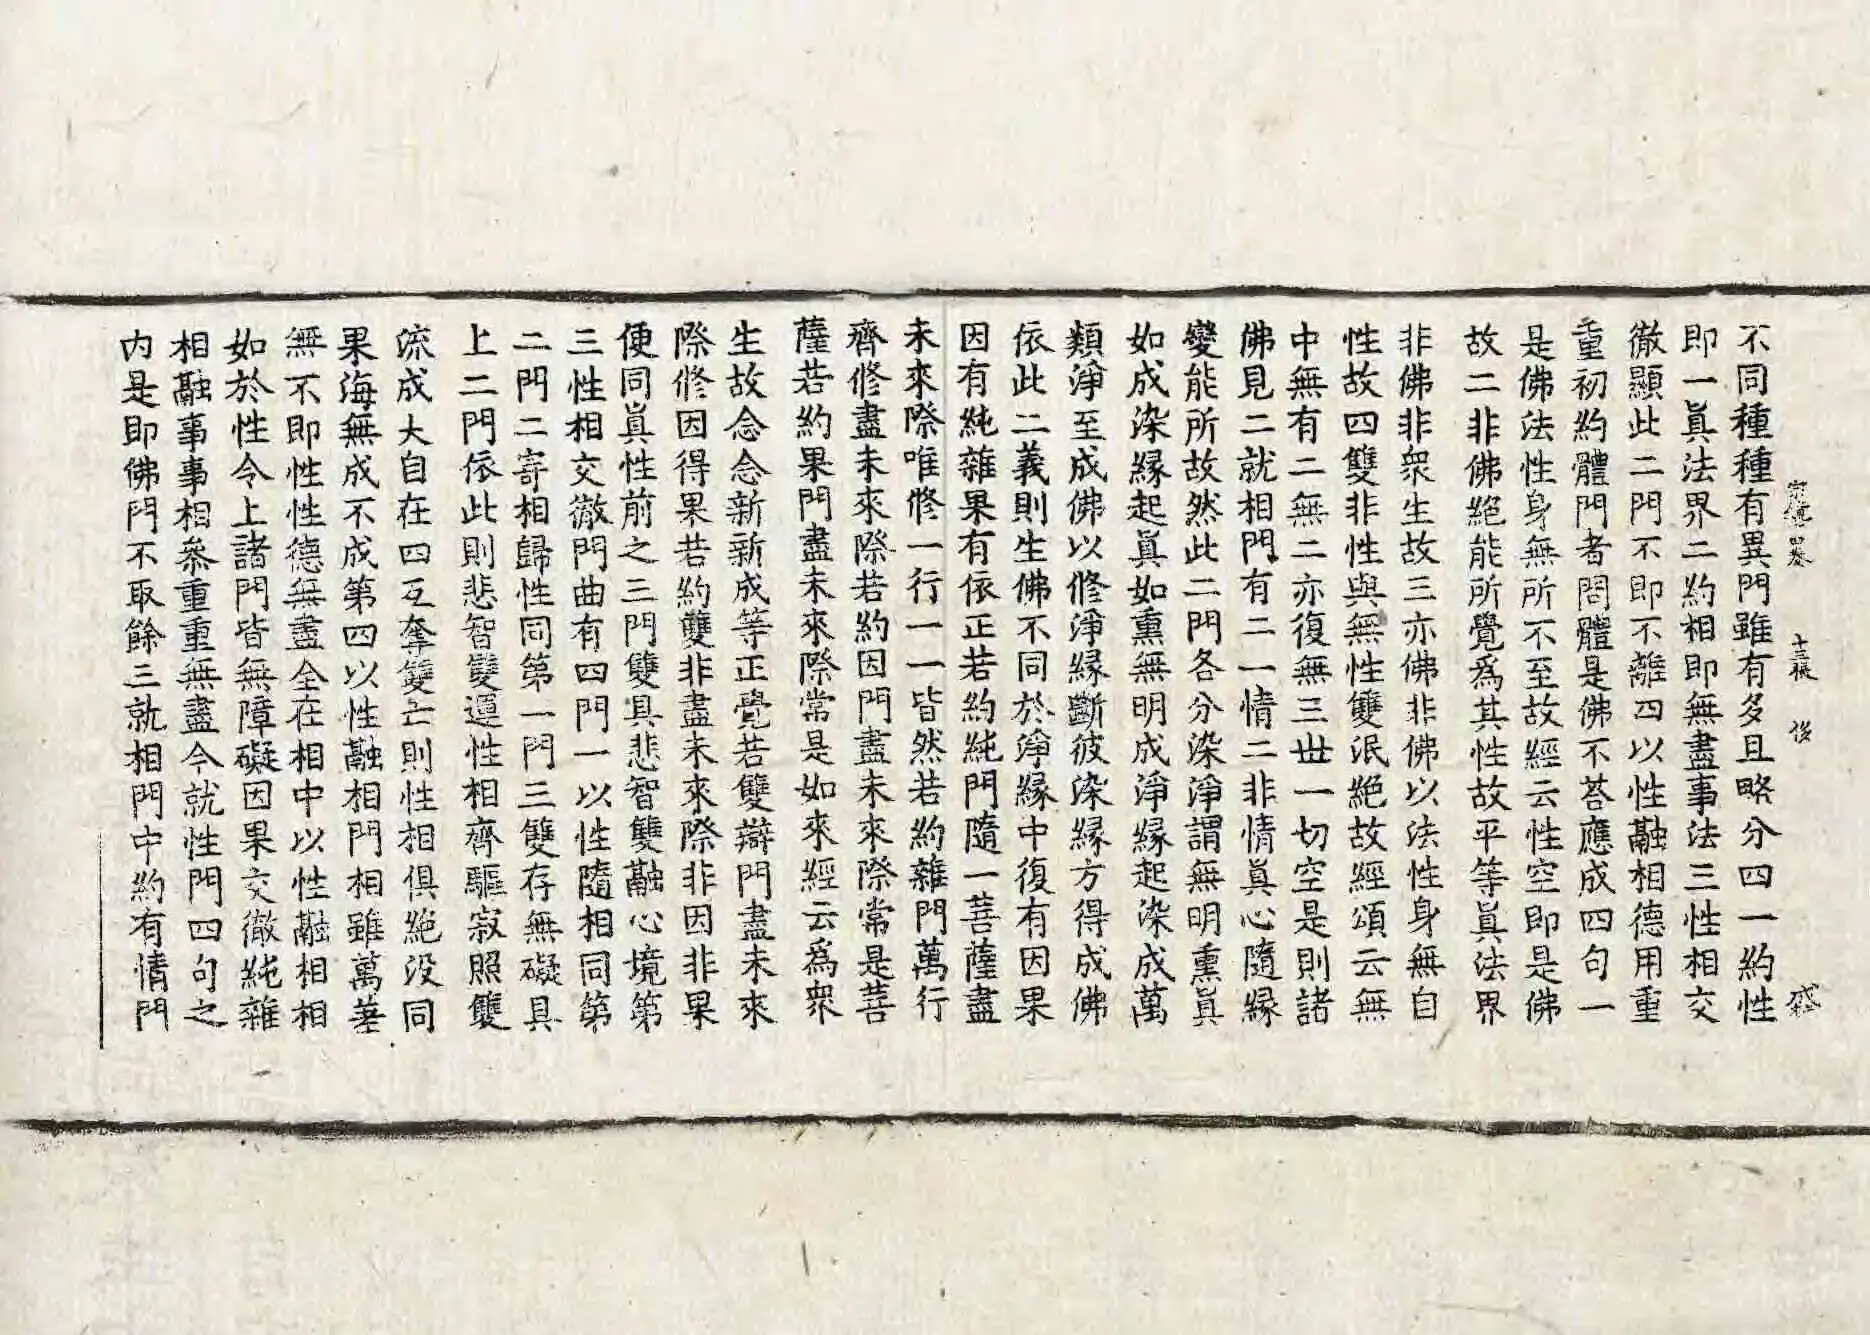 宗鏡四卷 十三張 後 㦲
不同種種有異門雖有多且略分四一約性
即一眞法界二約相即無盡事法三性相交
徹顯此二門不即不離四以性融相德用重
重初約體門者問體是佛不荅應成四句一
是佛法性身無所不至故經云性空即是佛
故二非佛絶能所覺爲其性故平等眞法界
非佛非衆生故三亦佛非佛以法性身無自
性故四雙非性與無性雙泯絶故經頌云無
中無有二無二亦復無三世一切空是則諸
佛見二就相門有二一情二非情眞心隨縁
變能所故然此二門各分染淨謂無明熏眞
如成染縁起眞如熏無明成淨縁起染成萬
類淨至成佛以修淨縁斷彼染縁方得成佛
依此二義則生佛不同於淨縁中復有因果
因有純雜果有依正若約純門隨一菩薩盡
未來際唯修一行一一皆然若約雜門萬行
齊修盡未來際若約因門盡未來際常是菩
薩若約果門盡未來際常是如來經云爲衆
生故念念新新成等正覺若雙辯門盡未來
際修因得果若約雙非盡未來際非因非果
便同眞性前之三門雙具悲智雙融心境第
三性相交徹門曲有四門一以性隨相同第
二門二寄相歸性同第一門三雙存無礙具
上二門依此則悲智雙運性相齊驅寂照雙
流成大自在四互奪雙亡則性相俱絶没同
果海無成不成第四以性融相門相雖萬差
無不即性性德無盡全在相中以性融相相
如於性令上諸門皆無障礙因果交徹純雜
相融事事相叅重重無盡今就性門四句之
内是即佛門不取餘三就相門中約有情門